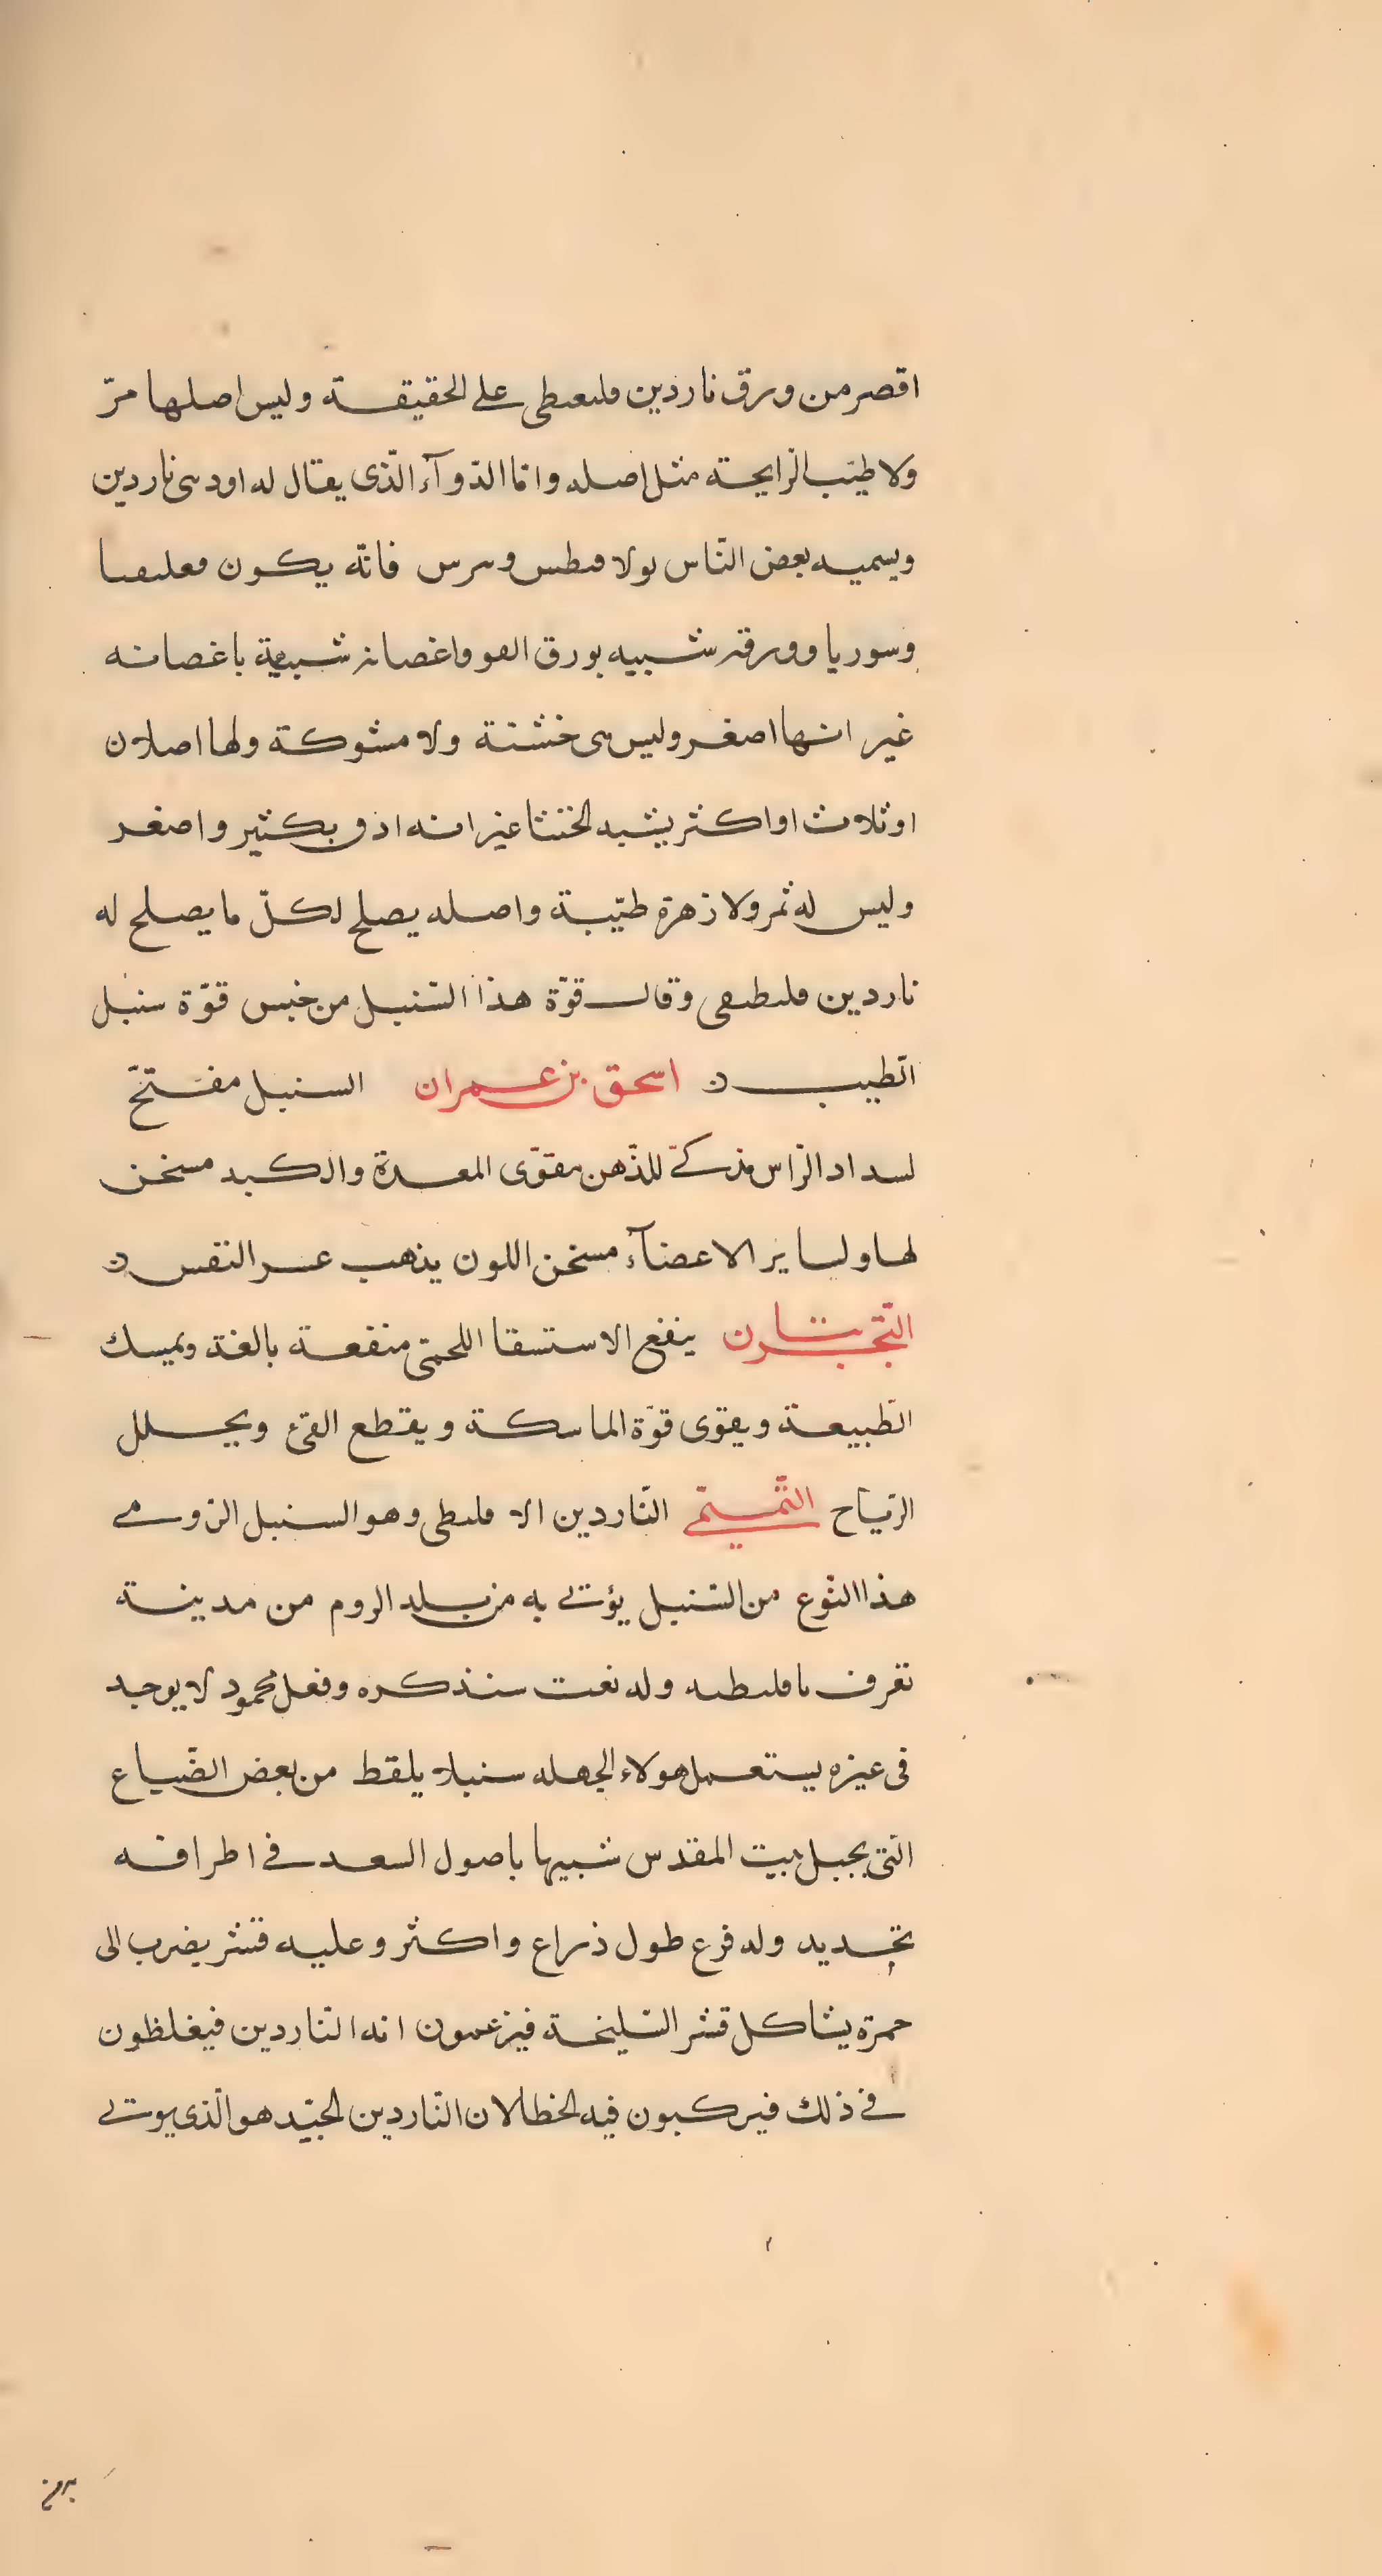 اقصر من ورق ناردين ملىعىطى على الحقيقة وليس اصلها مرّ
ولا طيّب الرّايحة مثل اصله وامّا الدّوآء الّذى يقال له اودسى ناردين
ويسميه بعض النّاس فانّه يكون
وسوريا وورقه شبيه بورق الفو واغصانه شبيهة باغصانه
غير انها اصغر وليس هى خشنة ولا مشوكة ولها اصلان
او ثلاث او اكثر يشبه الخنثا غير انه ادق بكثير واصغر
وليس له ثمر ولا زهرة طيّبة واصله يصلح لكلّ ما يصلح له
ناردين وقال قوّة هذا السّنبل من جنس قوّة سنبل
الطّيب ن اسحق بن عمران السنبل مفتّح
لسداد الرّاس مذكّ للذّهن مقوّى المعدة والكبد مسخن
لها ولساير الاعضآء مسخن اللون يذهب عسر النفس ن
التّجربتان ينفع الاستسقا اللحمّى منفعة بالغة ويمسك
الطّبيعة ويقوى قوّة الماسكة ويقطع القئ ويحلل
الرّياح التّميمّى النّاردين الا ملىطى وهو السنبل الرّومى
هذا النّوع من السّنبل يؤتى به من بلد الروم من مدينة
تعرف باملىطىه وله نعت سنذكره وفعل محمود لا يوجد
فى غيره يستعمل هولاء الجهله سنبلا يلقط من بعض الضّياع
الّتى بجبل بيت المقدس شبيها باصول السعد فى اطرافه
تحديد وله فرع طول ذراع واكثر وعليه قشر يضرب الى
حمرة يشاكل قشر السّليخة فيزعمون انه النّاردين فيغلظون
فى ذلك فيركبون فيه الخطا لان النّاردين الجيّد هو الّذى يوتى